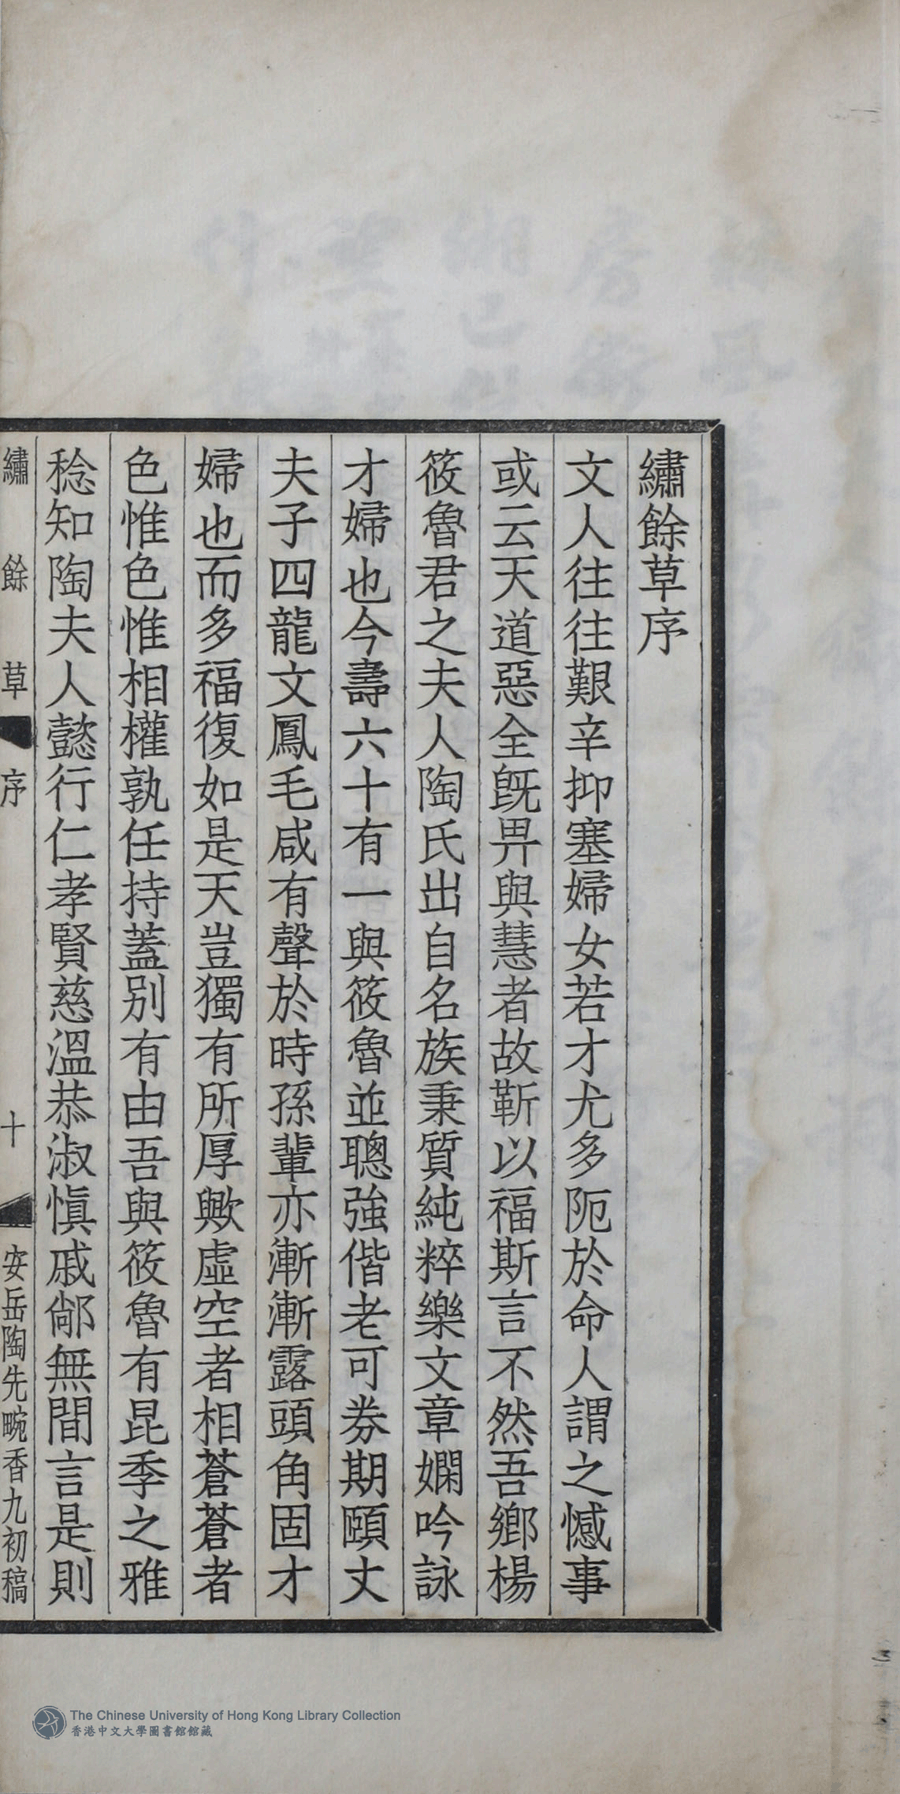 繡餘草序
文人往往艱辛抑塞婦女若才尤多阨於命人謂之憾事
或云天道惡全旣畀與慧者故靳以福斯言不然吾鄉楊
筱魯君之夫人陶氏出自名族秉質純粹樂文章嫻吟詠
才婦也今壽六十有一與筱魯並聰強偕老可券期頤丈
夫子四龍文鳳毛咸有聲於時孫輩亦漸漸露頭角固才
婦也而多福復如是天豈獨有所厚歟虛空者相蒼蒼者
色惟色惟相權孰任持蓋別有由吾與筱魯有昆季之雅
稔知陶夫人懿行仁孝賢慈溫恭淑愼戚鄰無間言是則
繡餘草 序 十 安岳陶先畹香九初稿
The Chinese University of Hong Kong Library Collection
香港中文大學圖書館館藏